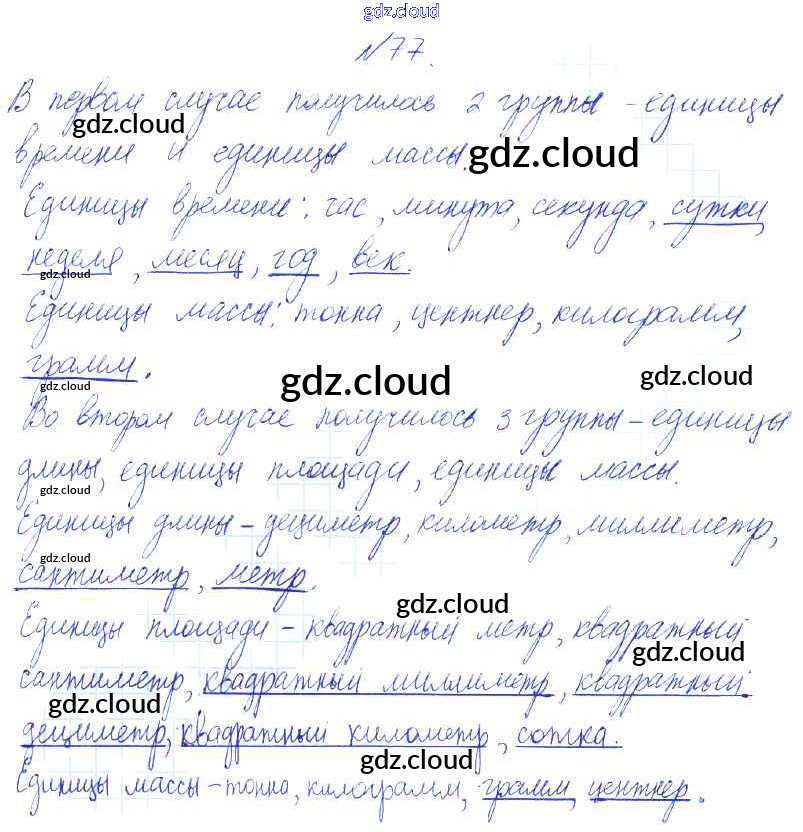 gdz.cloud
№77.
В первом случае получилось 2 группы – единицы
gdz.cloud
времени и единицы массы.
gdz.cloud
Единицы времени: час, минута, секунда, сутки,
неделя, месяц, год, век.
gdz.cloud
Единицы массы: тонна, центнер, килограмм,
грамм.
gdz.cloud
gdz.cloud
gdz.cloud
Во втором случае получилось 3 группы – единицы
длины, единицы площади, единицы массы.
gdz.cloud
Единицы длины – дециметр, километр, миллиметр,
gdz.cloud
сантиметр, метр.
gdz.cloud
Единицы площади – квадратный метр, квадратный
gdz.cloud
сантиметр, квадратный миллиметр, квадратный
gdz.cloud
дециметр, квадратный километр, сотка.
gdz.cloud
Единицы массы – тонна, килограмм, грамм, центнер.